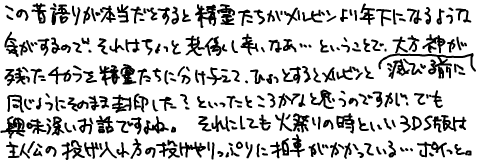 この昔語りが本当だとすると精霊たちがメルビンより年下になるような
気がするので、それはちょっと想像し辛いなあ…ということで、大方神が
残った千からを精霊たちに分け与えて、ひょっとするとメルビンと滅び前に
同じようにそのまま封印した？といったところかなと思うのですが、でも
興味深いお話ですよね。それにしても火祭りの時といい3DS版は
主人公の投げ入れ方の投げやりっぷりに拍車がかかっている…ポイっと。